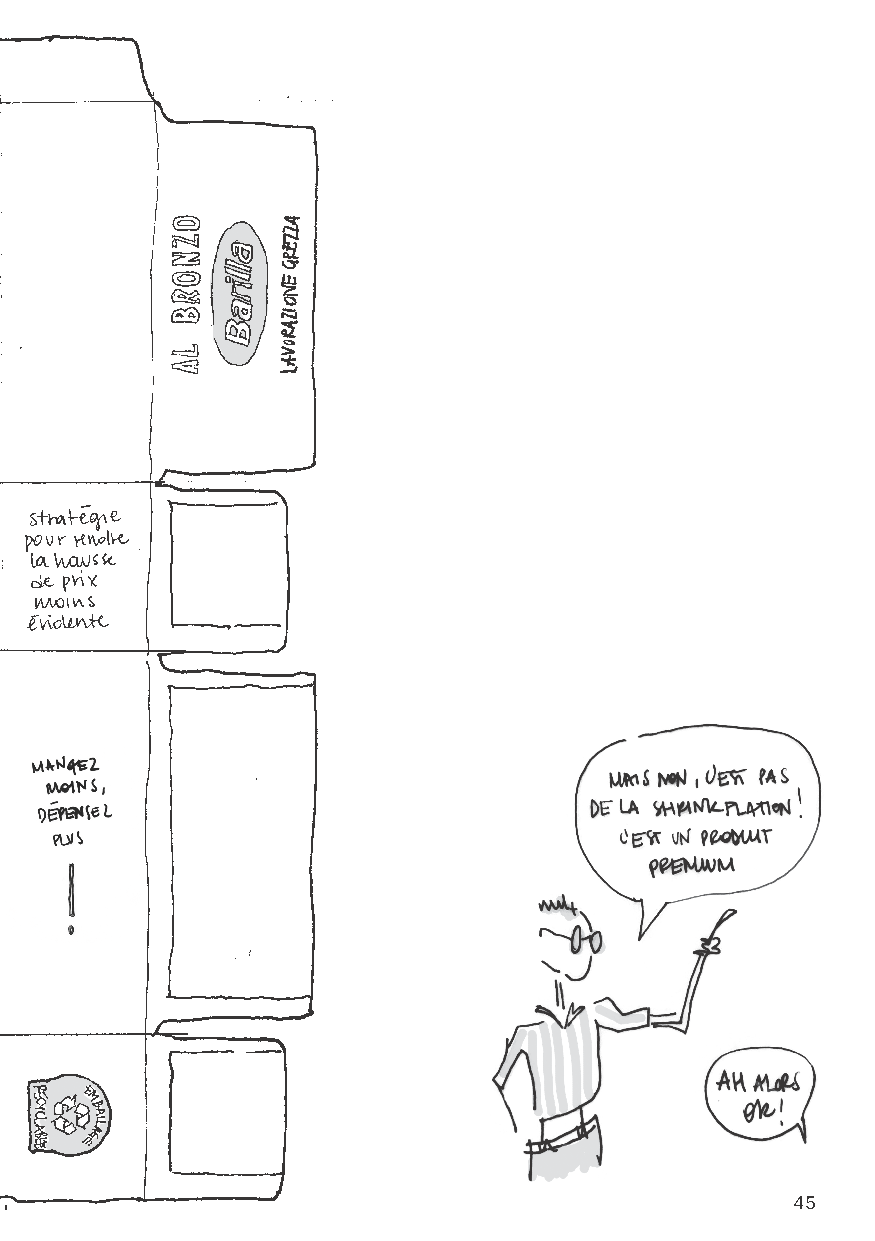 AL BRONZO
Barilla
LAVORAZIONE GREZZA
stratégie
pour rendre
la hausse
de prix
moins
évidente
MANGEZ
MOINS,
DÉPENSEZ
PLUS
!
EMBALLAGE
RECYCLABLE
MAIS NON, C'EST PAS
DE LA SHRINKFLATION!
C'EST UN PRODUIT
PREMIUM
AH ALORS
OK!
45